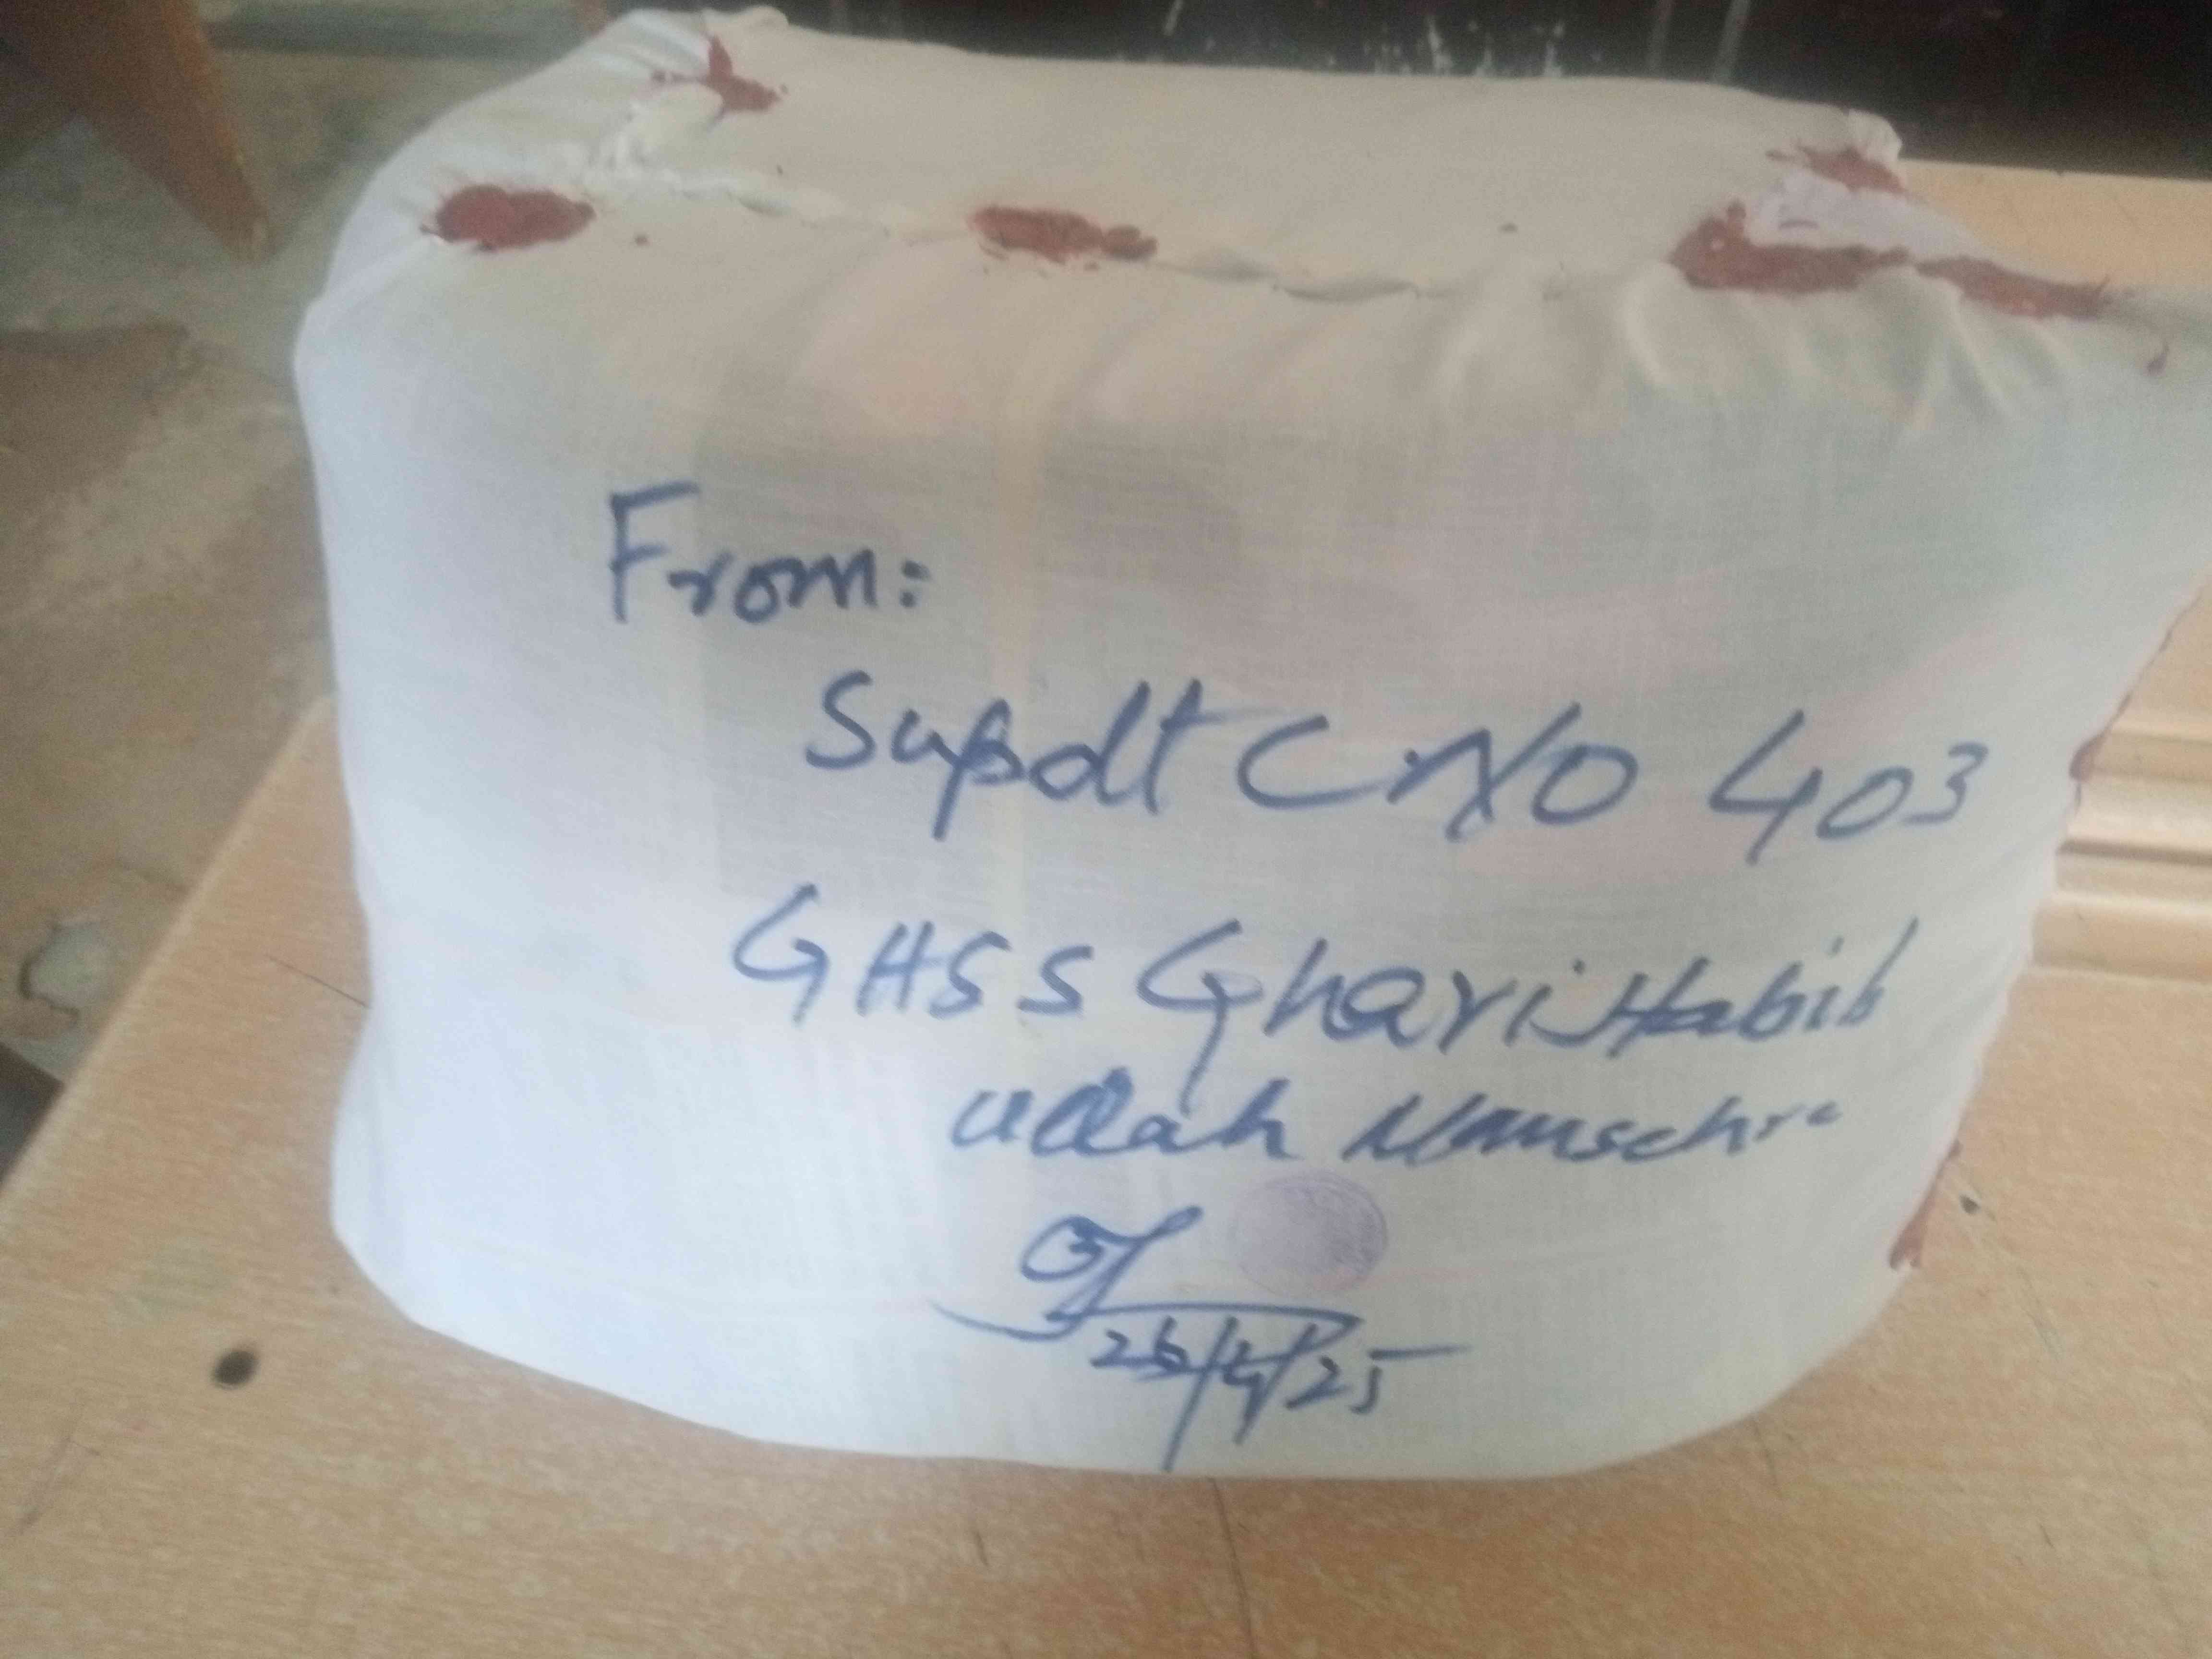 From:
Supdt C.NO 403
GHSS Ghari Habib
ullah Mansehra
26/4/25